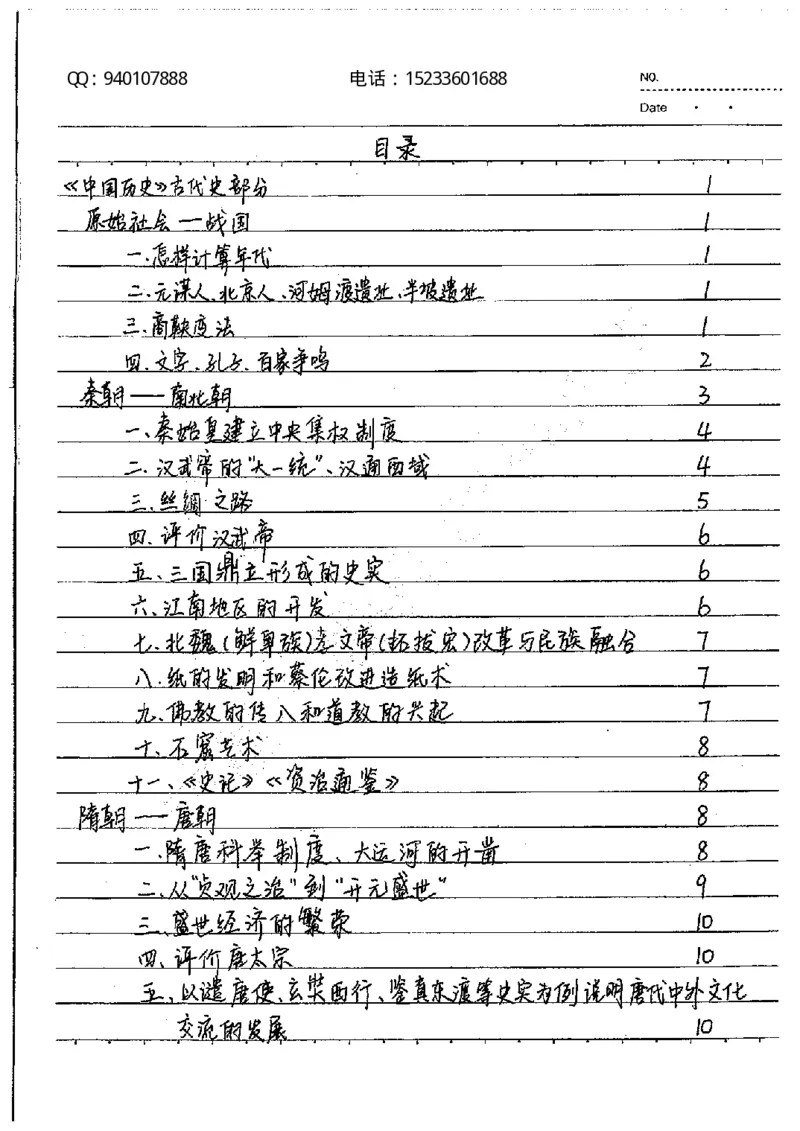 QQ：940107888 电话：15233601688 NO.
Date
目录
《中国历史》古代史部分 1
原始社会—战国 1
一.怎样计算年代 1
二.元谋人、北京人、河姆渡遗址、半坡遗址 1
三.商鞅变法 1
四.文字、孔子、百家争鸣 2
秦朝——南北朝 3
一、秦始皇建立中央集权制度 4
二.汉武帝的“大一统”、汉通西域 4
三.丝绸之路 5
四.评价汉武帝 6
五、三国鼎立形成的史实 6
六、江南地区的开发 6
七、北魏(鲜卑族)孝文帝(拓拔宏)改革与民族融合 7
八.纸的发明和蔡伦改进造纸术 7
九、佛教的传入和道教的兴起 7
十、石窟艺术 8
十一、《史记》《资治通鉴》 8
隋朝——唐朝 8
一.隋唐科举制度、大运河的开凿 8
二、从“贞观之治”到“开元盛世” 9
三、盛世经济的繁荣 10
四、评价唐太宗 10
五、以遣唐使、玄奘西行、鉴真东渡等史实为例说明唐代中外文化
交流的发展 10